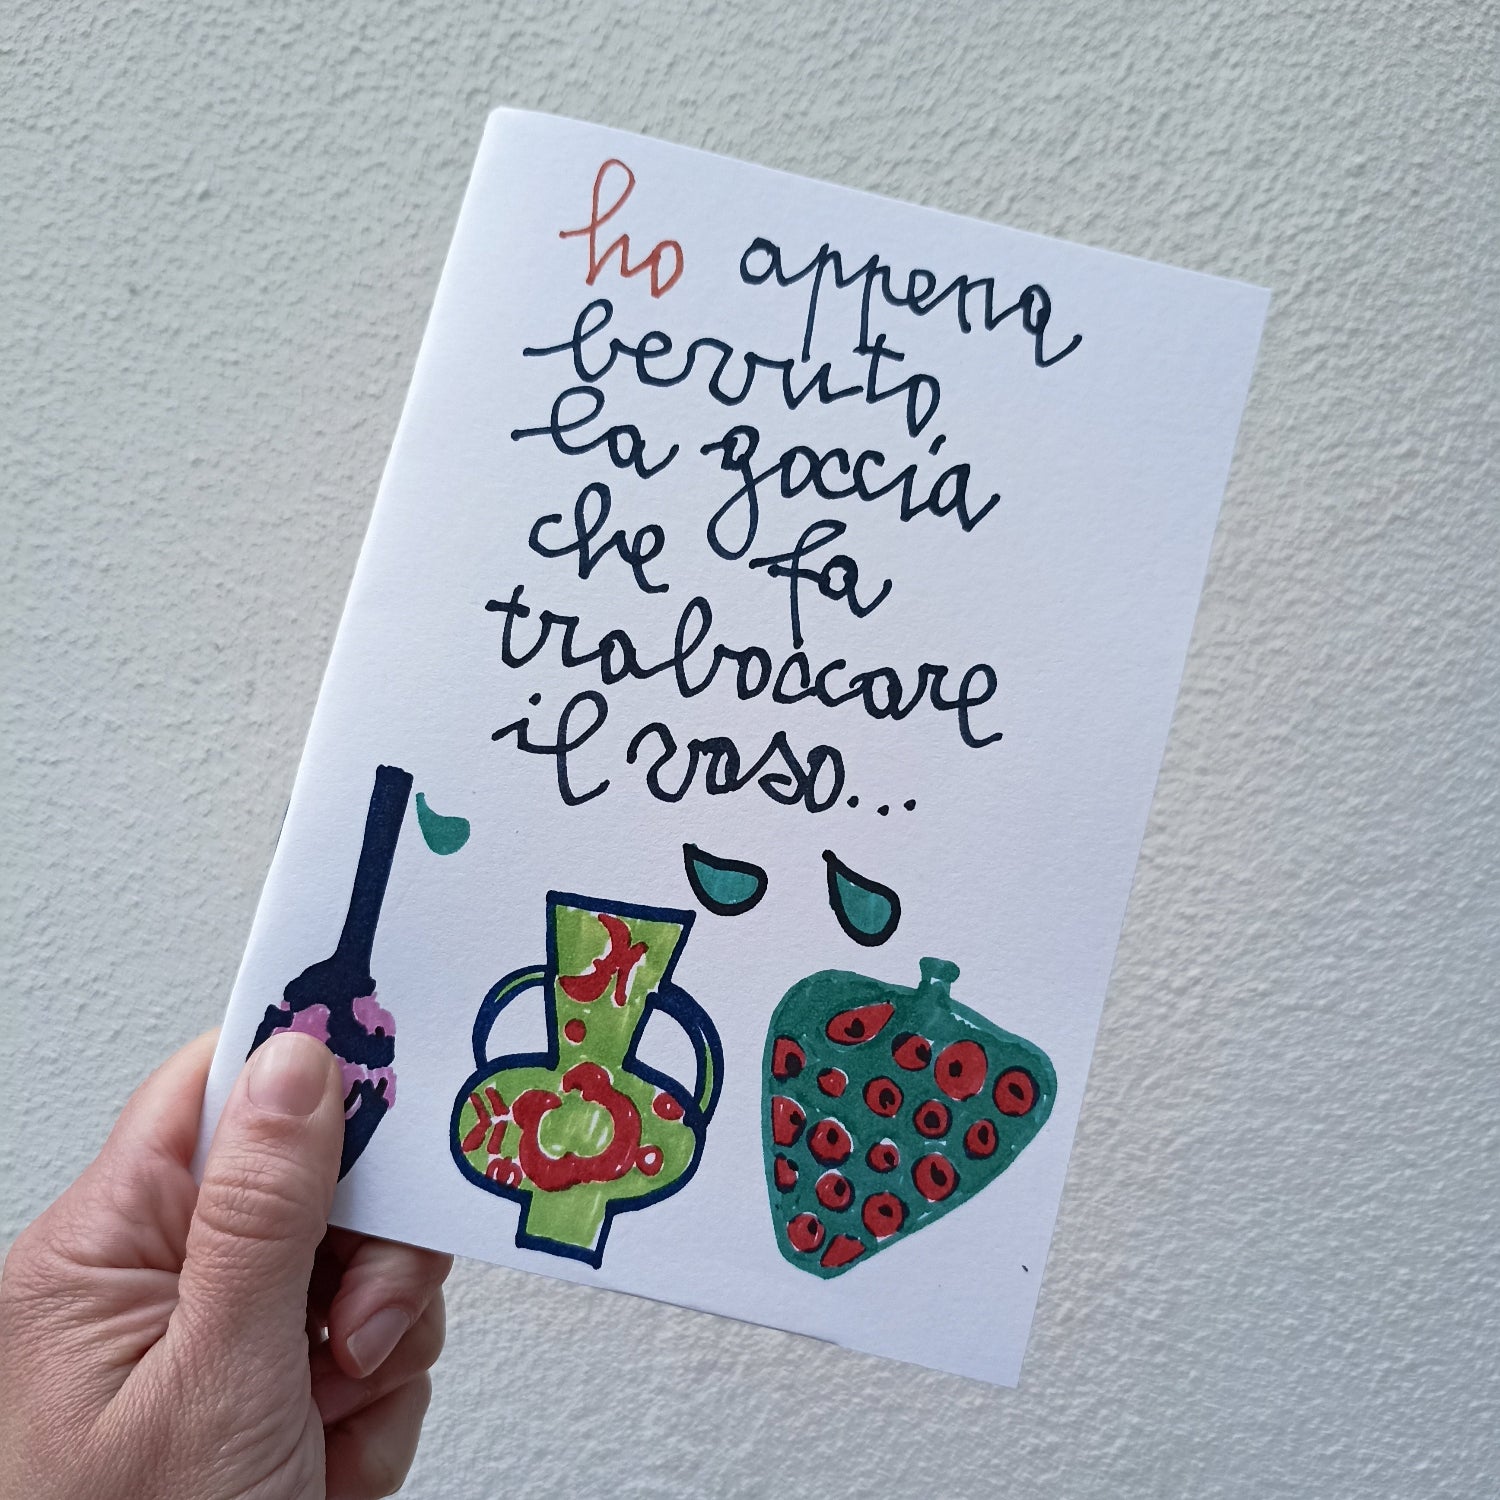 ho appena
bevuto
la goccia
che fa
traboccare
il vaso...